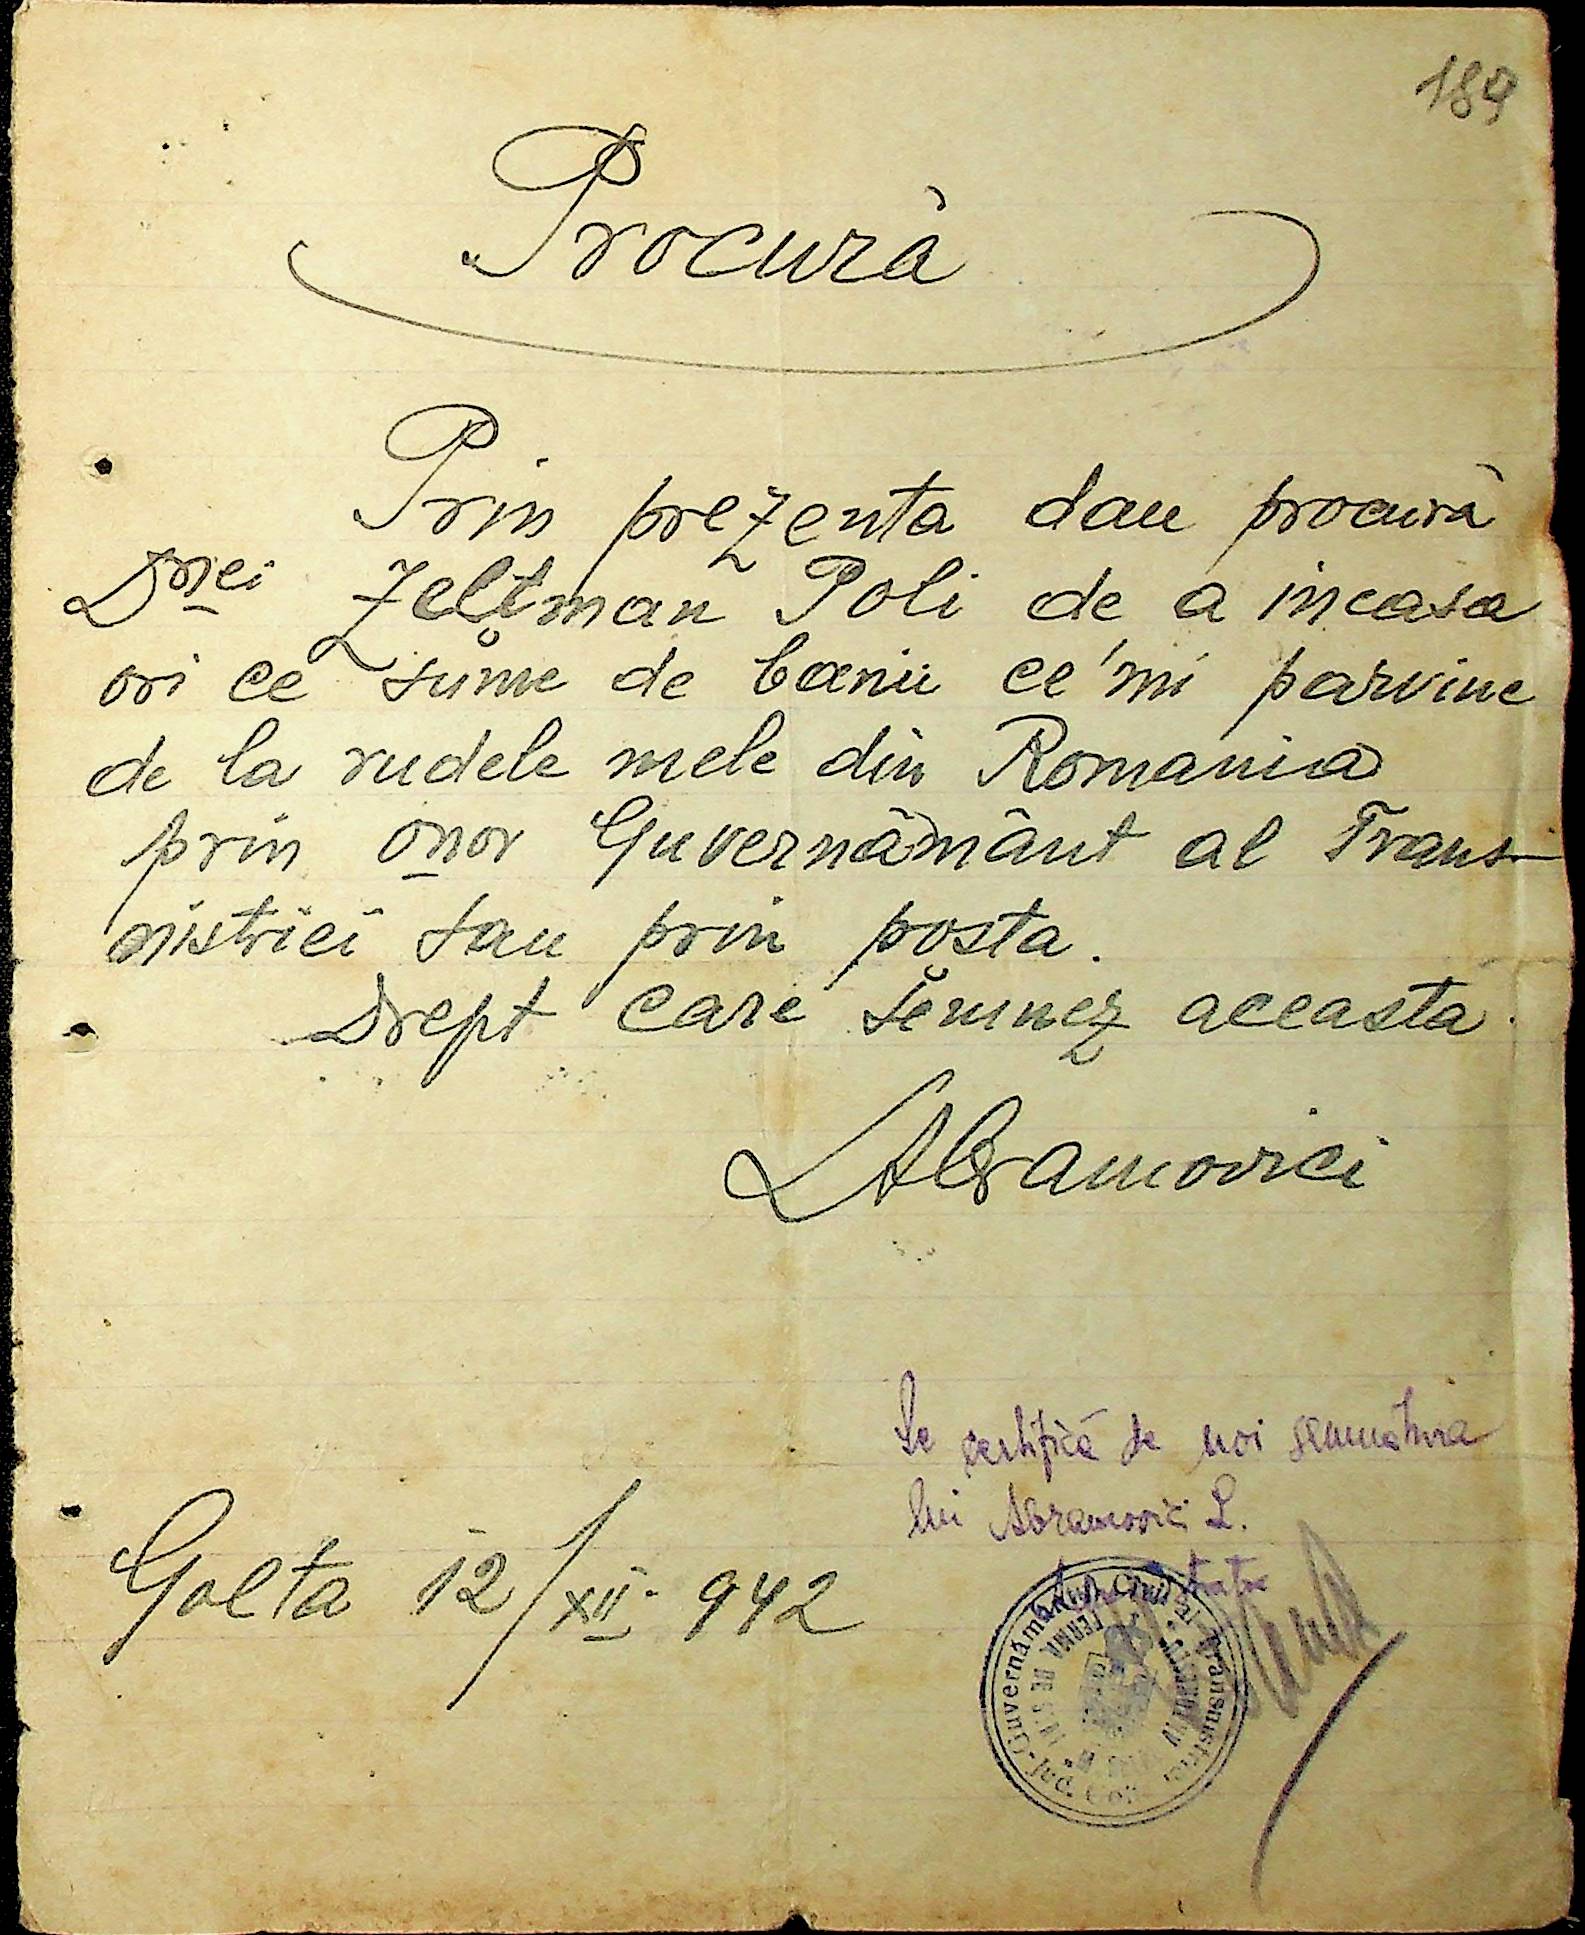 189
Procură
Prin prezenta dau procură
Dnei Zeltman Poli de a incasa
ori ce sume de banii ce'mi parvine
de la rudele mele din Romania
prin onor Guvernământ al Trans-
nistriei sau prin posta.
Drept care semnez aceasta.
LAbramovici
Se certifică de noi semnătura
lui Abramovici L.
Golta 12/XII. 942
Guvernământul Civil al Transnistriei
Jud. Golta
FERMA DE STAT